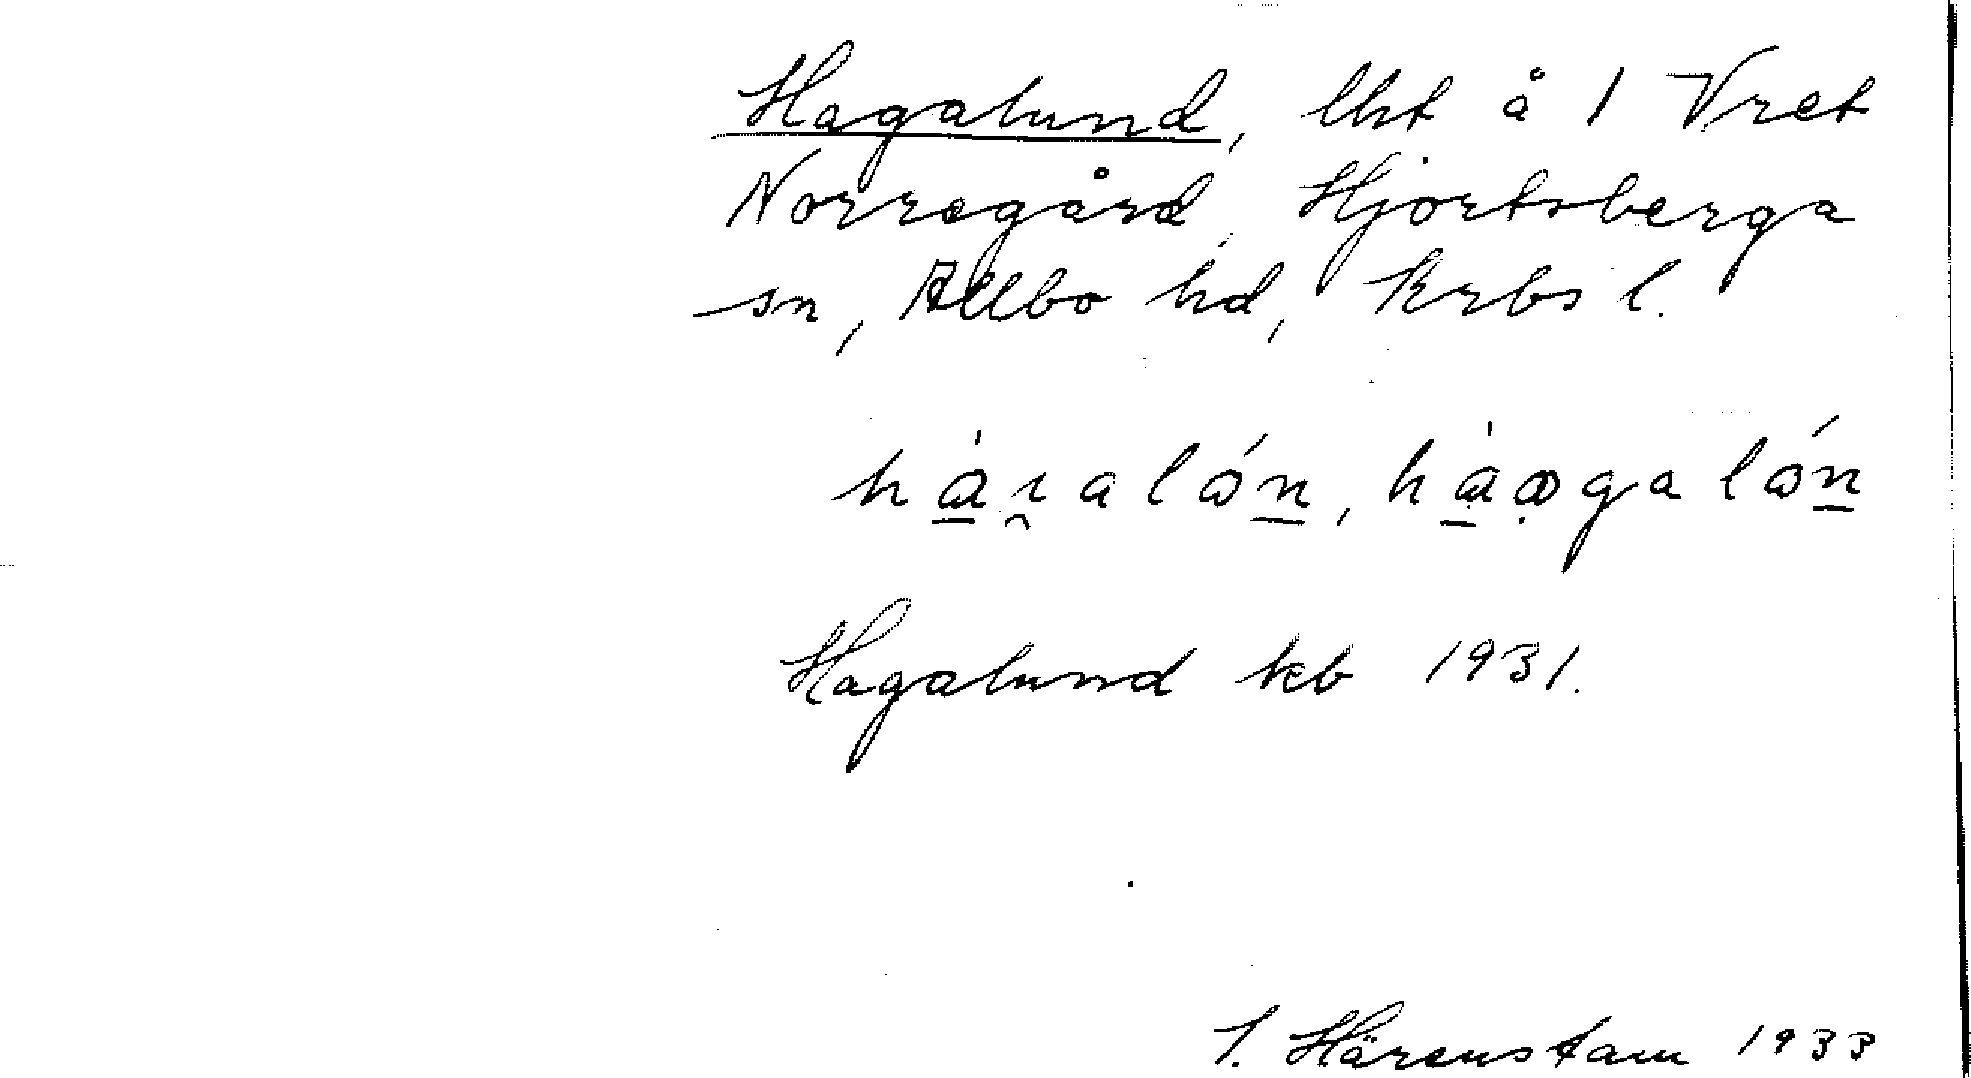 Hagalund, lht å 1 Vret
Norregård, Hjortsberga
sn, Allbo hd, Krbs l.
Hagalund kb 1931.
Härenstam 1933